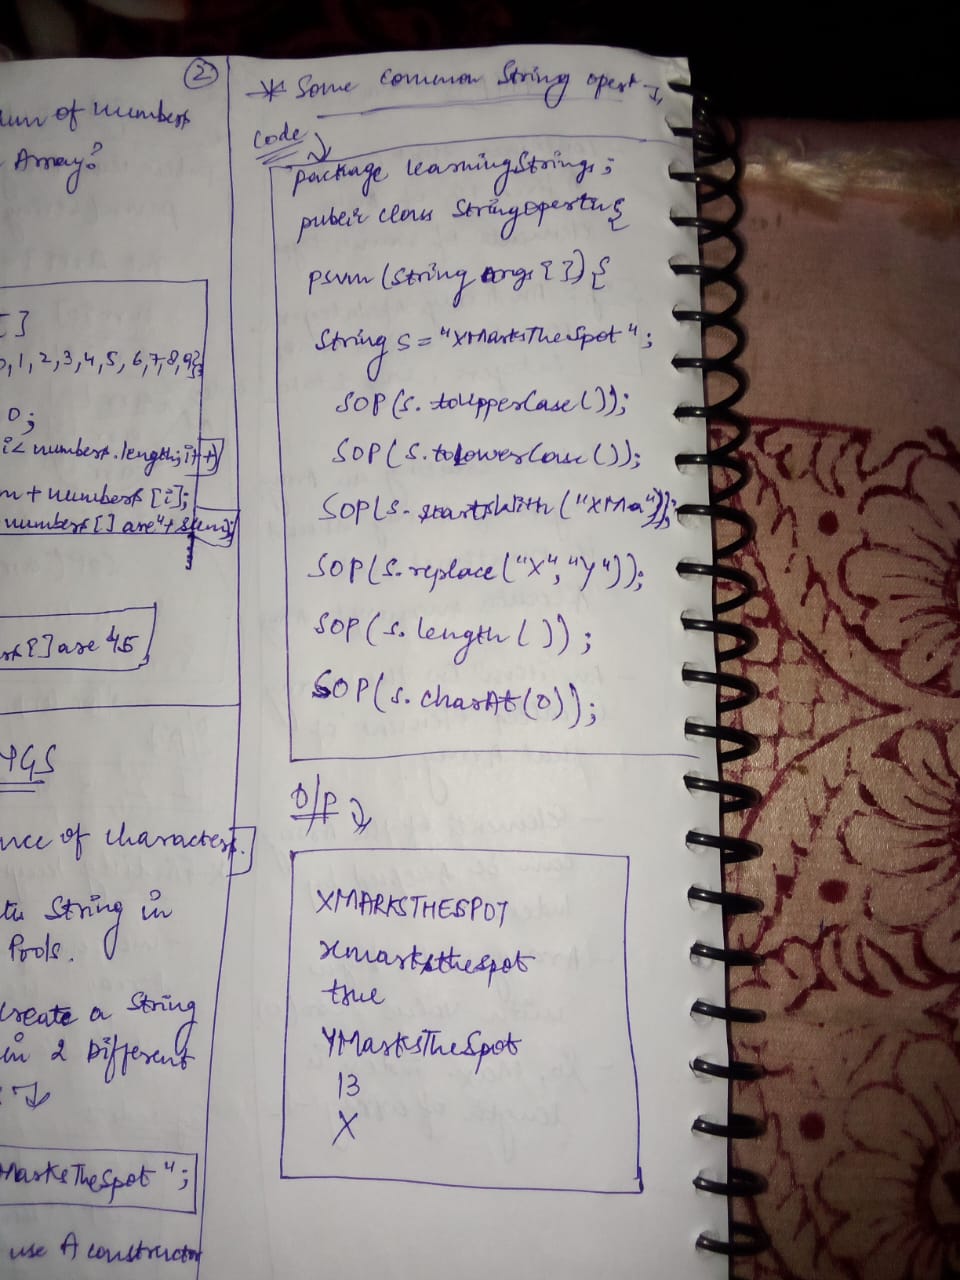 ②
um of numbers
Array?
[ ]
0,1,2,3,4,5,6,7,8,9};
0;
i< numbers.length; i++)
m + numbers [i];
numbers[] are "+ sum);
rs[] are 45
NGS
nce of characters.
String in
Pools.
Create a String
in 2 Different
MarksTheSpot";
use A constructor
* Some common String
Code
package learningStrings;
public class
psvm (String args []) {
String s = "XMarksTheSpot";
SOP (s. toUpperCase ());
SOP (s. toLowerCase ());
SOP (s. startsWith ("XMa"));
SOP (s. replace ("X", "Y"));
SOP (s. length ());
SOP (s. charAt (0));
O/P
XMARKSTHESPOT
xmarksthespot
true
YMarksTheSpot
13
X